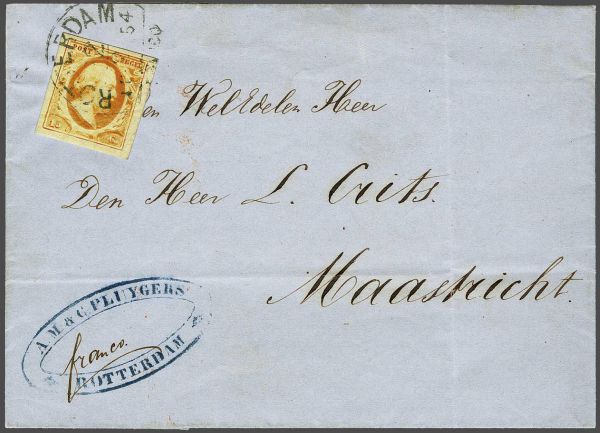 ERDAM
54
POST ZEGEL
en WelEdelen Heer
Den Heer L. Crits.
Maastricht.
A. M & C. PLUYGERS
franco.
ROTTERDAM